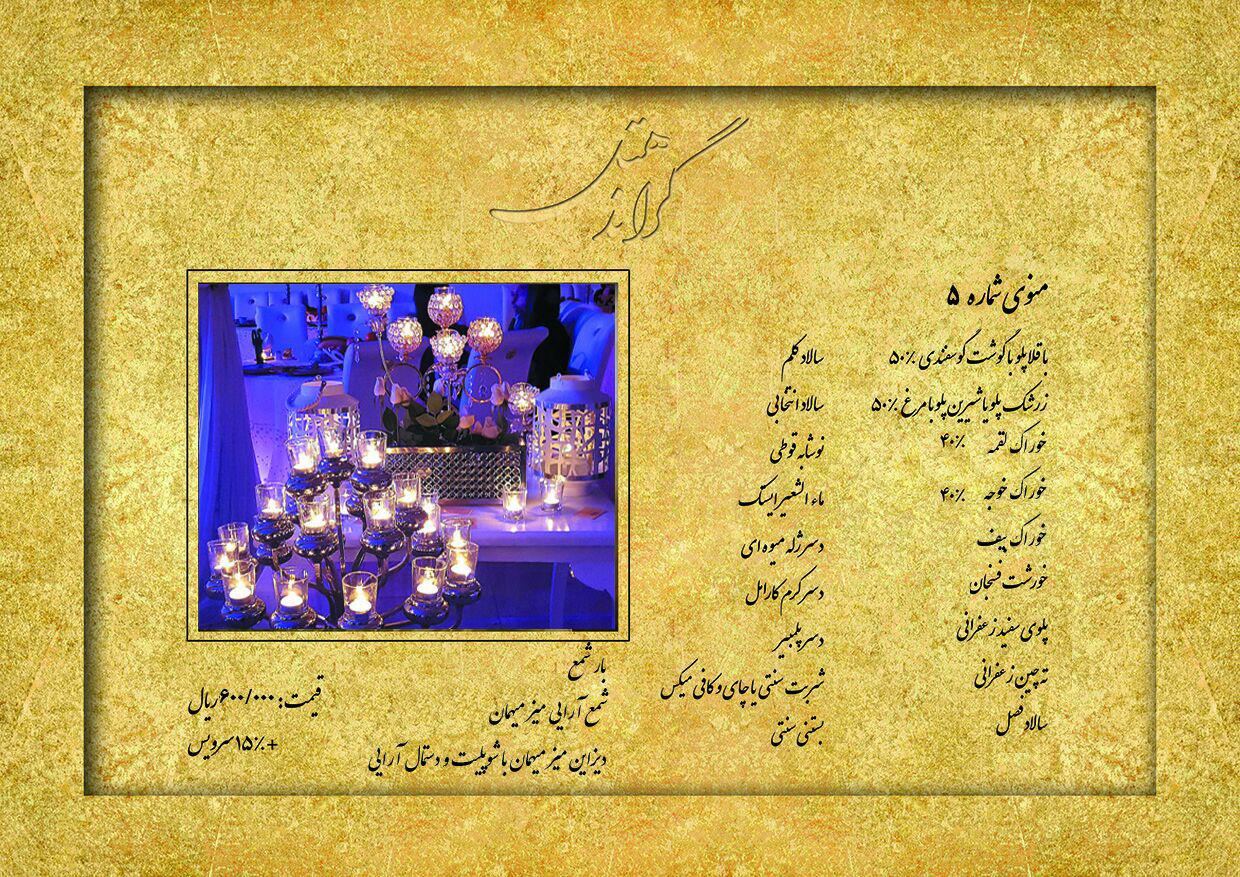 هتل
گراند
منوی شماره ۵
باقلا پلو با گوشت گوسفندی ۵۰٪
زرشک پلو یا شیرین پلو با مرغ ۵۰٪
خوراک لقمه ۴۰٪
خوراک جوجه ۴۰٪
خوراک بیف
خورشت فسنجان
پلوی سفید زعفرانی
ته چین زعفرانی
سالاد فصل
سالاد کلم
سالاد انتخابی
نوشابه قوطی
ماء الشعیر ایستک
دسر ژله میوه ای
دسر کرم کارامل
دسر پلمبیر
شربت سنتی یا چای و کافی میکس
بستنی سنتی
بار شمع
شمع آرایی میز میهمان
دیزاین میز میهمان با شو پلیت و دستمال آرایی
قیمت: ۶۰۰/۰۰۰ ریال
+۱۵٪ سرویس